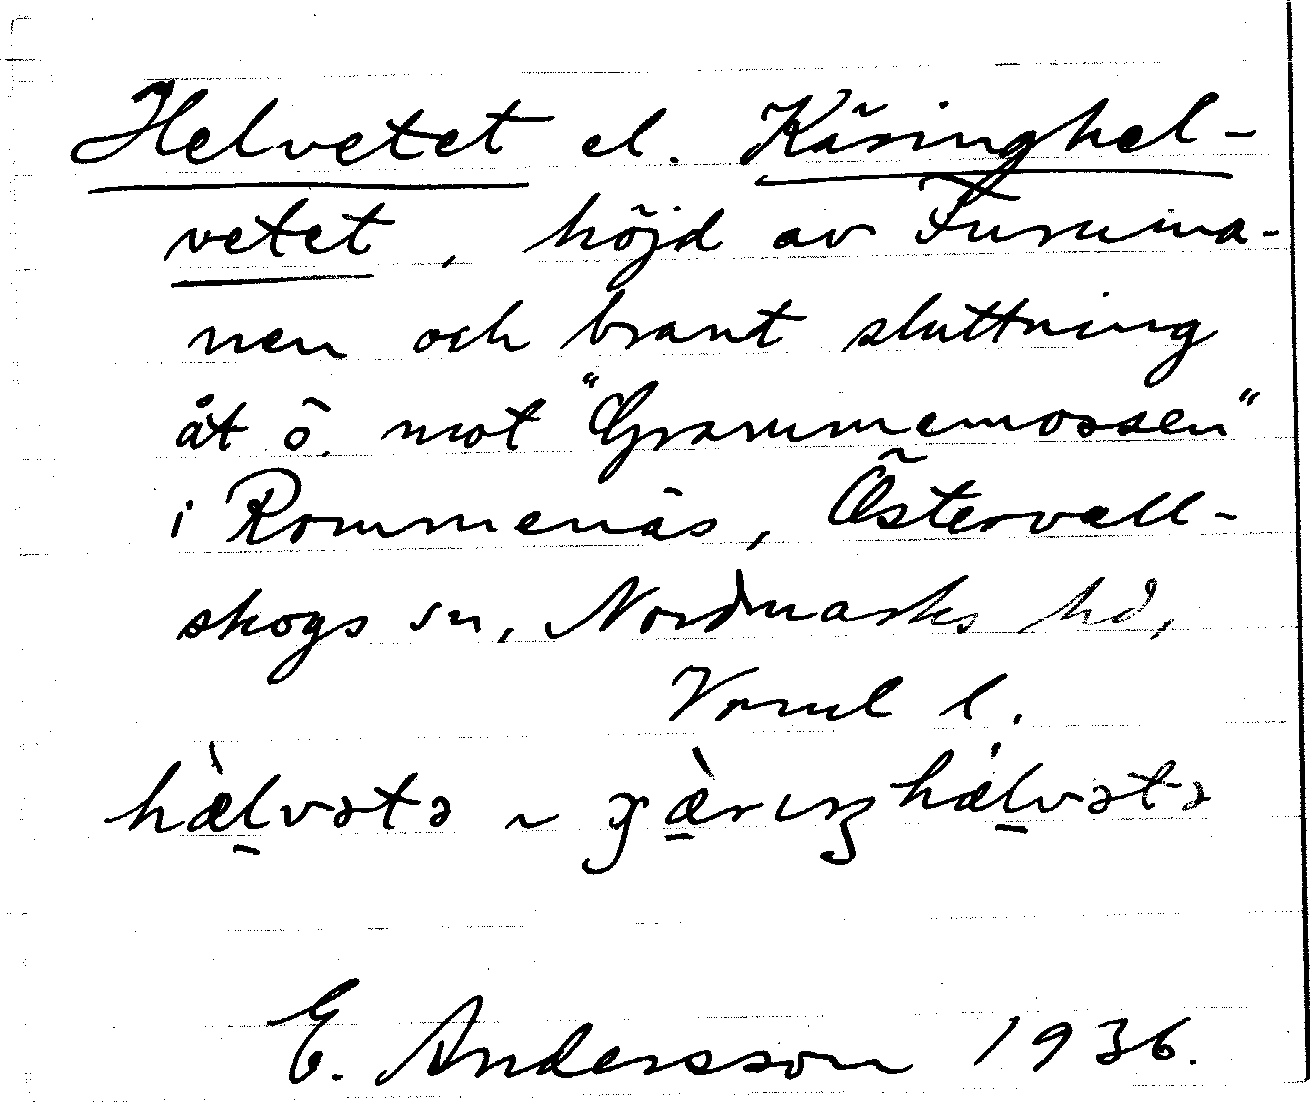 Helvetet el. Käringhel-
vetet, höjd av Furuma-
nen och brant sluttning
åt ö. mot "Grammemossen"
i Rommenäs, Östervall-
skogs sn, Nordmarks hd,
Vrml l.
hæ̀lvətə ~ gæ̀rıŋhælvətə
E. Andersson 1936.